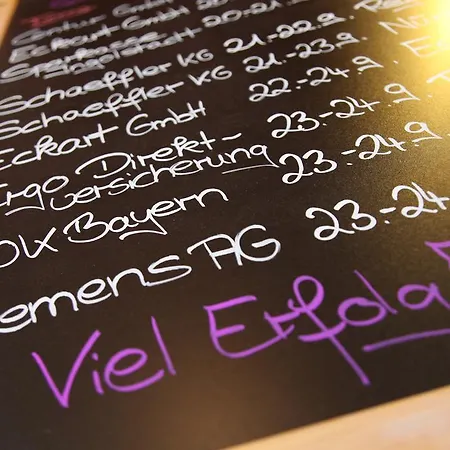 GmbH
Eckart GmbH 20.-21.
Sparkasse
Ingolstadt
Schaeffler KG 21.-22.9.
Schaeffler KG 21.-23.9.
Eckart GmbH 22.-24.9.
Ergo Direkt-
versicherung 23.-24.9.
Bayern 23.-24.9.
Siemens AG 23.-24.
Viel Erfolg